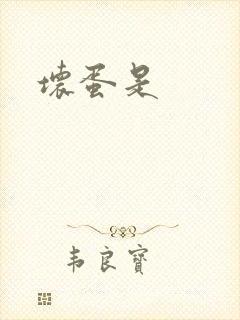 壞蛋是
韦良寶